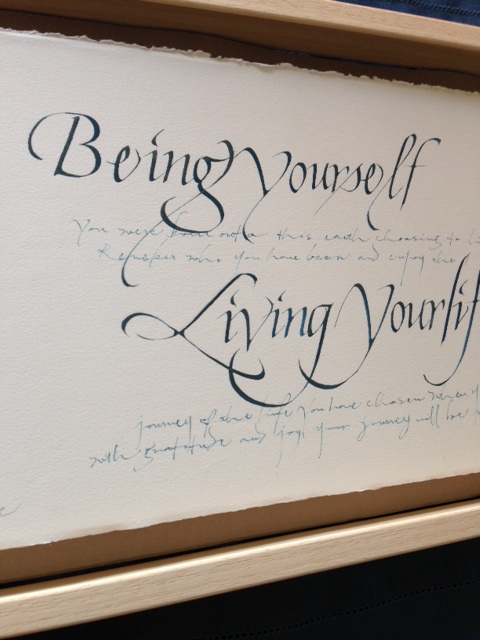 Being Yourself
You were born onto this earth choosing to
Remember who you have been and enjoy the
Living Yourlif
journey of the life you have chosen
with gratitude and joy your journey will be